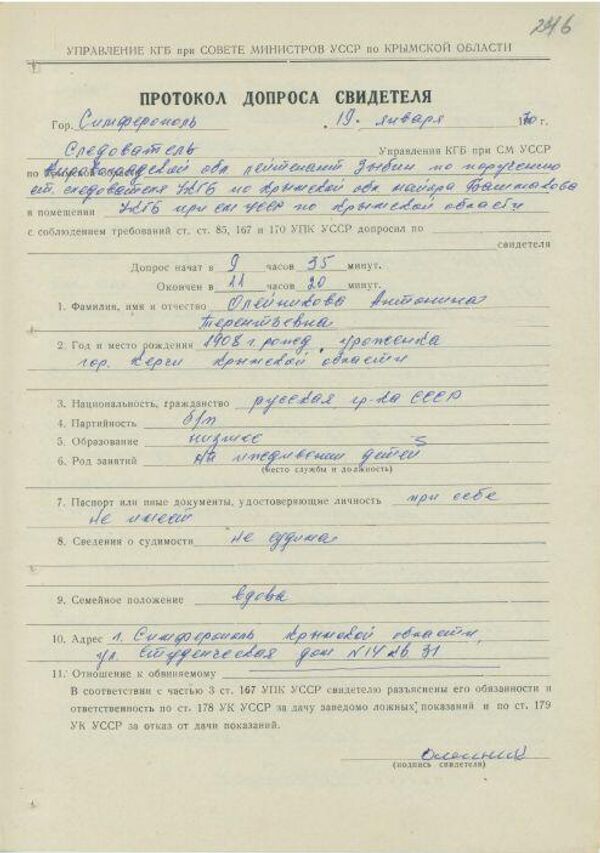 246
УПРАВЛЕНИЕ КГБ при СОВЕТЕ МИНИСТРОВ УССР по КРЫМСКОЙ ОБЛАСТИ
ПРОТОКОЛ ДОПРОСА СВИДЕТЕЛЯ
Гор. Симферополь 19 января 1970г.
Следователь Управления КГБ при СМ УССР
по Кировоградской обл. лейтенант Зыбин по поручению
ст. следователя УКГБ по Крымской обл. майора Башмакова
в помещении УКГБ при СМ УССР по Крымской области
с соблюдением требований ст. ст. 85, 167 и 170 УПК УССР допросил по
свидетеля
Допрос начат в 9 часов 35 минут.
Окончен в 11 часов 20 минут.
1. Фамилия, имя и отчество Олейникова Антонина
Терентьевна
2. Год и место рождения 1908 г. рожд. уроженка
гор. Керчи Крымской области
3. Национальность, гражданство русская гр-ка СССР
4. Партийность б/п
5. Образование низшее
6. Род занятий на иждивении детей
(место службы и должность)
7. Паспорт или иные документы, удостоверяющие личность при себе
не имеет
8. Сведения о судимости не судима
9. Семейное положение вдова
10. Адрес г. Симферополь Крымской области,
ул. Студенческая дом N 14 кв 31
11. Отношение к обвиняемому
В соответствии с частью 3 ст. 167 УПК УССР свидетелю разъяснены его обязанности и
ответственность по ст. 178 УК УССР за дачу заведомо ложных показаний и по ст. 179
УК УССР за отказ от дачи показаний.
(подпись свидетеля)